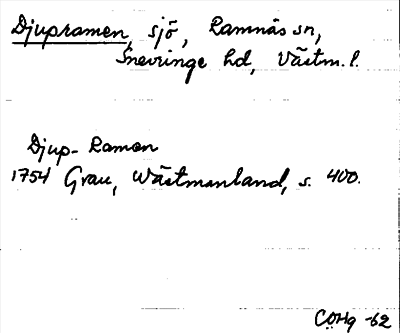 Djupramen, sjö, Ramnäs sn,
Snevringe hd, Västm. l.
Djup-Ramen
1754 Grau, Wästmanland, s. 400.
CÖHg -62